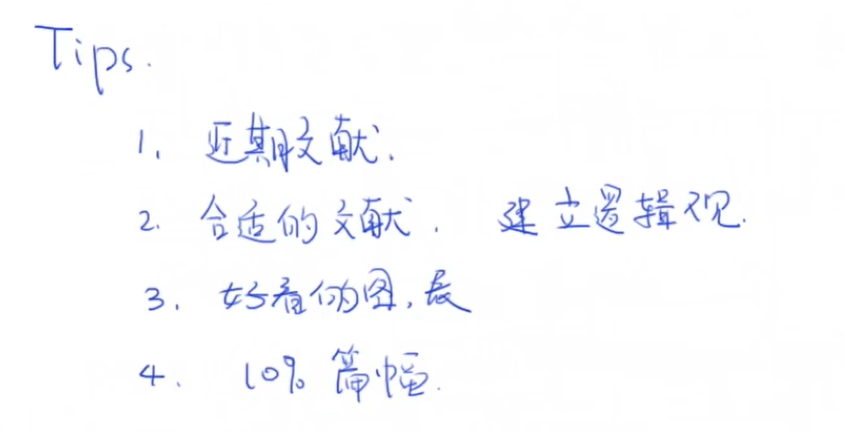 Tips.
1. 近期文献.
2. 合适的文献. 建立逻辑观.
3. 好看的图,表
4. 10% 篇幅.